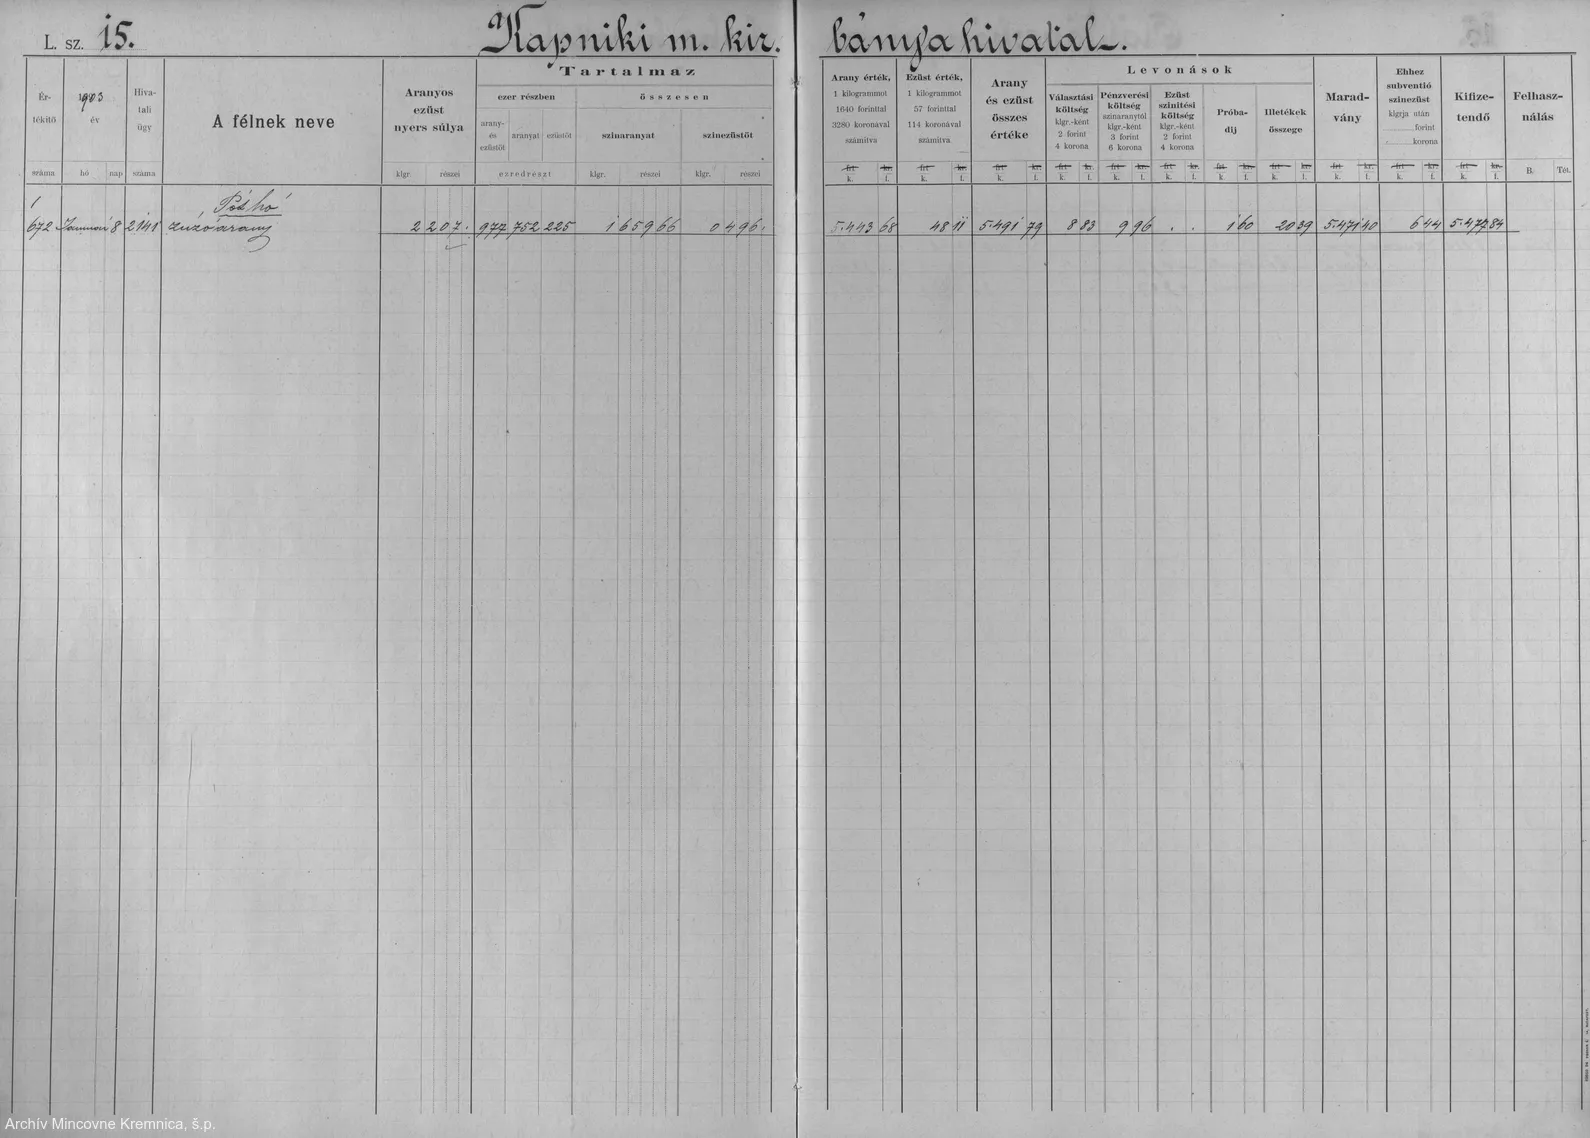 L. sz. 15. Kapniki m. kir. bányahivatal.
Ér-
tékitő
száma
1903
év
hó nap
Hiva-
tali
ügy
száma
A félnek neve
Aranyos
ezüst
nyers súlya
klgr. részei
Tartalmaz
ezer részben
arany-
és
ezüstöt
aranyat ezüstöt
ezredrészt
összesen
szinaranyat
klgr. részei
szinezüstöt
klgr. részei
Arany érték,
1 kilogrammot
1640 forinttal
3280 koronával
számitva
frt kr.
k. f.
Ezüst érték,
1 kilogrammot
57 forinttal
114 koronával
számitva
frt kr.
k. f.
Arany
és ezüst
összes
értéke
frt kr.
k. f.
Levonások
Választási
költség
klgr.-ként
2 forint
4 korona
frt kr.
k. f.
Pénzverési
költség
szinaranytól
klgr.-ként
3 forint
6 korona
frt kr.
k. f.
Ezüst
szinitési
költség
klgr.-ként
2 forint
4 korona
frt kr.
k. f.
Próba-
dij
frt kr.
k. f.
Illetékek
összege
frt kr.
k. f.
Marad-
vány
frt kr.
k. f.
Ehhez
subventió
szinezüst
klgrja után
forint
korona
frt kr.
k. f.
Kifize-
tendő
frt kr.
k. f.
Felhasz-
nálás
B. Tét.
Pót hó
672 Januári 8 2141 zúzóarany 2 207. 977 752 225 1 65966 0 496. 5.443 68 48 11 5.491 79 8 83 9 96 . . 1 60 20 39 5.471 40 6 44 5.477 84
Archív Mincovne Kremnica, š.p.